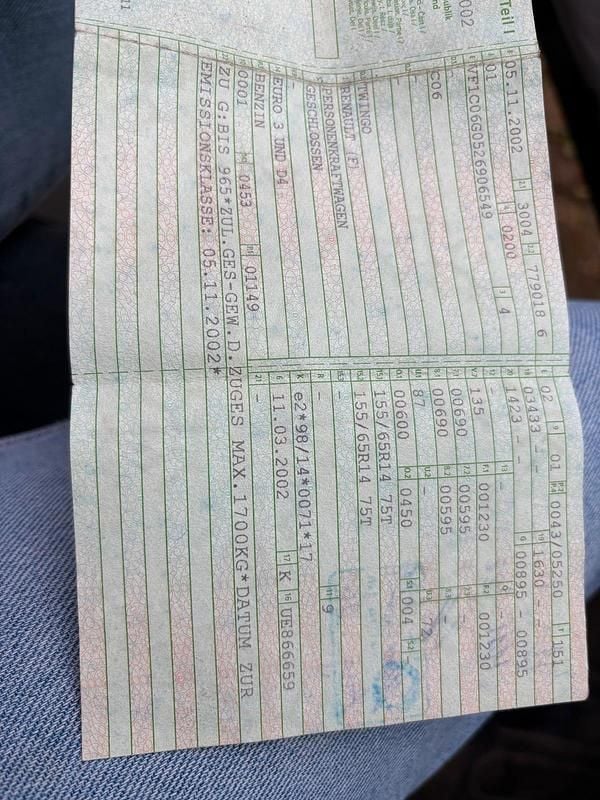 Teil I
05.11.2002 2.1 3004 2.2 779018 6
01 0200 4
VF1C06G0526906549
C06
-
-
TWINGO
RENAULT (F)
PERSONENKRAFTWAGEN
GESCHLOSSEN
-
EURO 3 UND D4
BENZIN
0001 0453 01149
02 9 01 0043/05250 T 151
03433 - - 1630 - -
1423 - - G 00895 - 00895
- -
135 001230 001230
00690 00595 -
00690 00595 -
87 - 72
00600 0450 004 -
155/65R14 75T
155/65R14 75T
-
- 9
K e2*98/14*0071*17
6 11.03.2002 17 K 16 UE866659
21 -
ZU G:BIS 965*ZUL.GES-GEW.D.ZUGES MAX.1700KG*DATUM ZUR
EMISSIONSKLASSE: 05.11.2002*